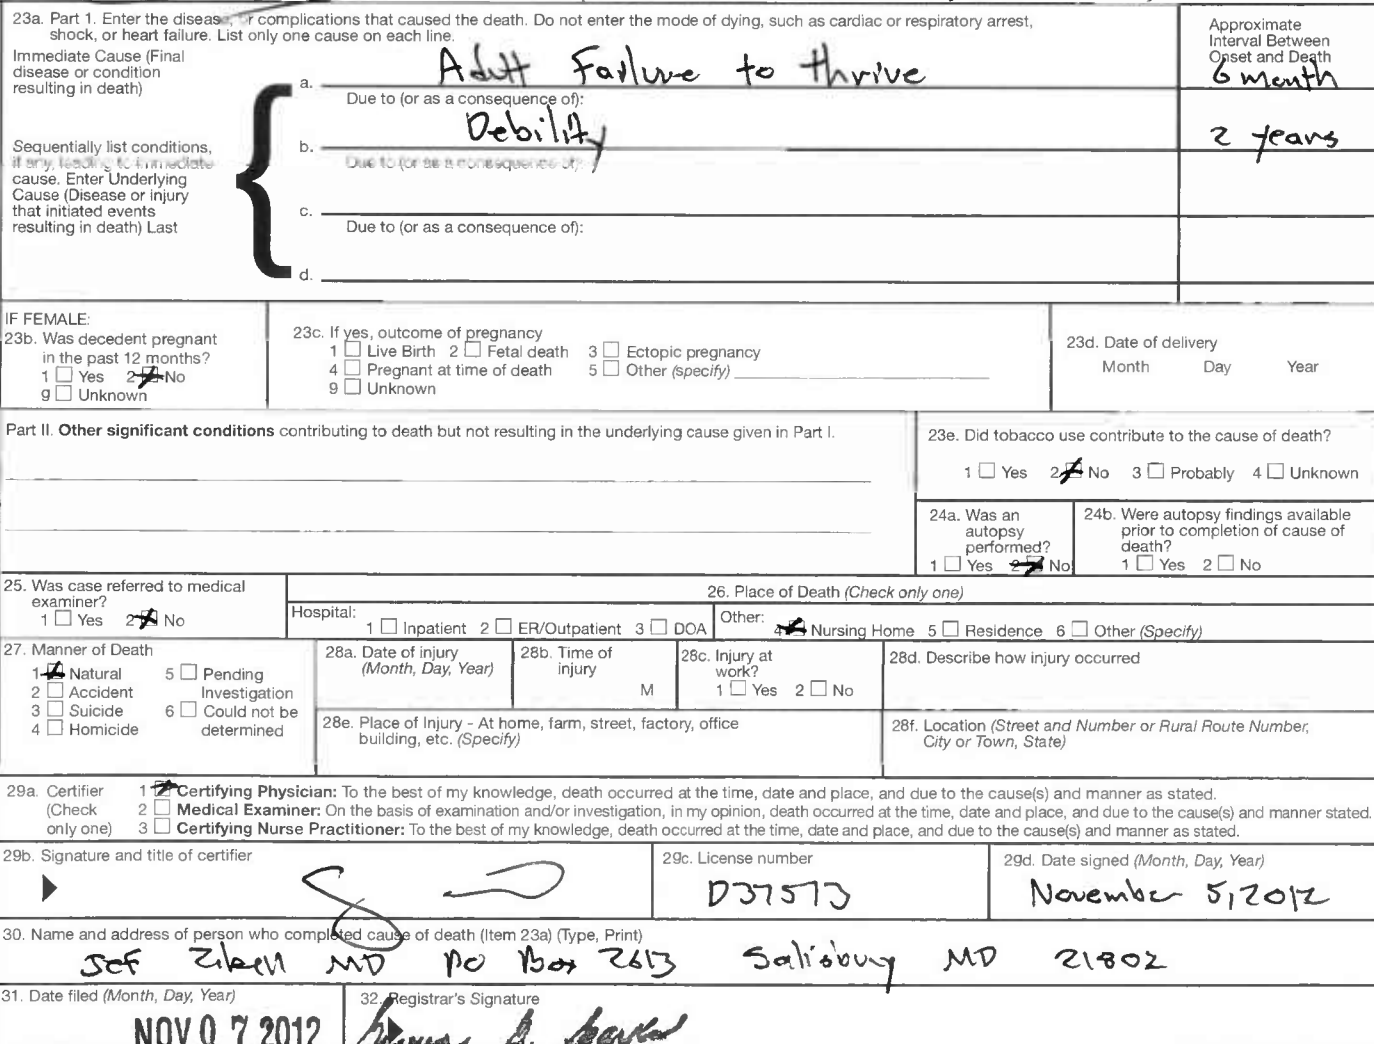 23a. Part 1. Enter the disease, or complications that caused the death. Do not enter the mode of dying, such as cardiac or respiratory arrest,
shock, or heart failure. List only one cause on each line.
Approximate
Interval Between
Onset and Death
Immediate Cause (Final
disease or condition
resulting in death)
a. Adult Failure to thrive
6 month
Due to (or as a consequence of):
b. Debility
2 years
Sequentially list conditions,
if any, leading to immediate
cause. Enter Underlying
Cause (Disease or injury
that initiated events
resulting in death) Last
Due to (or as a consequence of):
c.
Due to (or as a consequence of):
d.
IF FEMALE:
23b. Was decedent pregnant
in the past 12 months?
1 ☐ Yes 2 ☒ No
9 ☐ Unknown
23c. If yes, outcome of pregnancy
1 ☐ Live Birth 2 ☐ Fetal death 3 ☐ Ectopic pregnancy
4 ☐ Pregnant at time of death 5 ☐ Other (specify)
9 ☐ Unknown
23d. Date of delivery
Month Day Year
Part II. Other significant conditions contributing to death but not resulting in the underlying cause given in Part I.
23e. Did tobacco use contribute to the cause of death?
1 ☐ Yes 2 ☒ No 3 ☐ Probably 4 ☐ Unknown
24a. Was an
autopsy
performed?
1 ☐ Yes 2 ☒ No
24b. Were autopsy findings available
prior to completion of cause of
death?
1 ☐ Yes 2 ☐ No
25. Was case referred to medical
examiner?
1 ☐ Yes 2 ☒ No
26. Place of Death (Check only one)
Hospital: 1 ☐ Inpatient 2 ☐ ER/Outpatient 3 ☐ DOA
Other: 4 ☒ Nursing Home 5 ☐ Residence 6 ☐ Other (Specify)
27. Manner of Death
1 ☒ Natural 5 ☐ Pending
2 ☐ Accident Investigation
3 ☐ Suicide 6 ☐ Could not be
4 ☐ Homicide determined
28a. Date of injury
(Month, Day, Year)
28b. Time of
injury
M
28c. Injury at
work?
1 ☐ Yes 2 ☐ No
28d. Describe how injury occurred
28e. Place of Injury - At home, farm, street, factory, office
building, etc. (Specify)
28f. Location (Street and Number or Rural Route Number,
City or Town, State)
29a. Certifier
(Check
only one)
1 ☒ Certifying Physician: To the best of my knowledge, death occurred at the time, date and place, and due to the cause(s) and manner as stated.
2 ☐ Medical Examiner: On the basis of examination and/or investigation, in my opinion, death occurred at the time, date and place, and due to the cause(s) and manner stated.
3 ☐ Certifying Nurse Practitioner: To the best of my knowledge, death occurred at the time, date and place, and due to the cause(s) and manner as stated.
29b. Signature and title of certifier
29c. License number
D37573
29d. Date signed (Month, Day, Year)
November 5, 2012
30. Name and address of person who completed cause of death (Item 23a) (Type, Print)
MD PO Box 2613 Salisbury MD 21802
31. Date filed (Month, Day, Year)
NOV 07 2012
32. Registrar's Signature